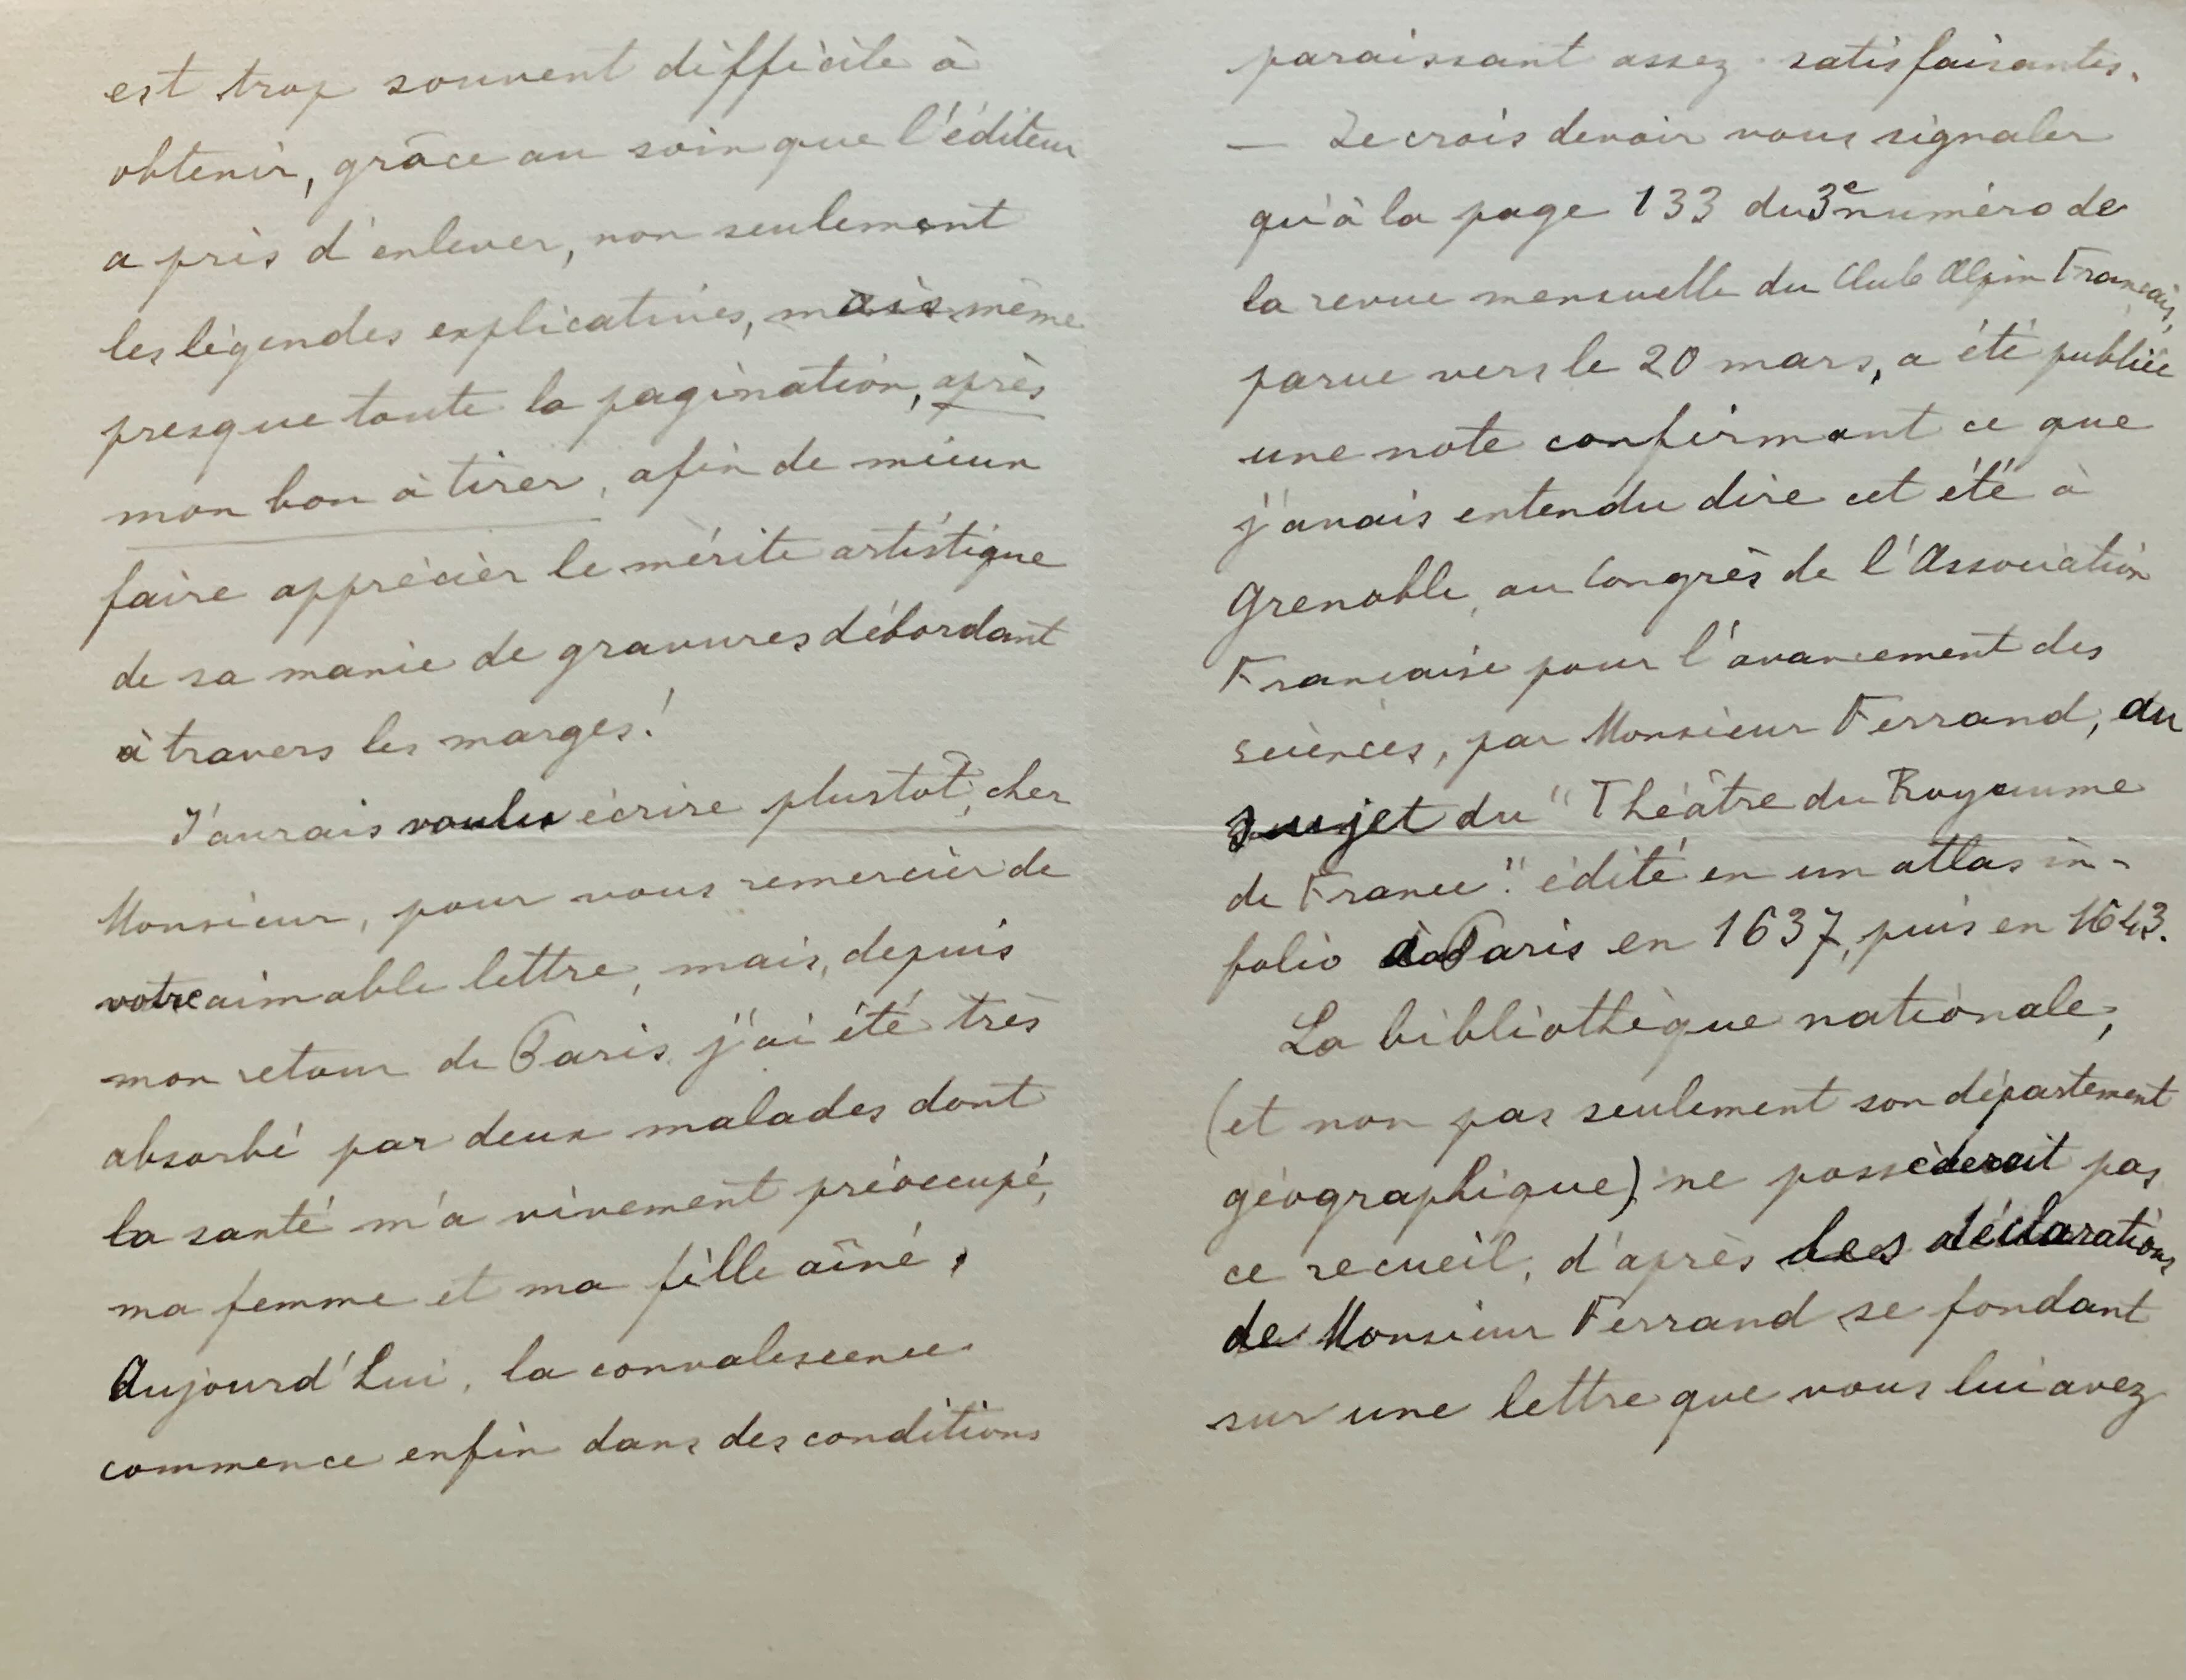 est trop souvent difficile à
obtenir, grâce au soin que l'éditeur
a pris d'enlever, non seulement
les légendes explicatives, mais même
presque toute la pagination, après
mon bon à tirer, afin de mieux
faire apprécier le mérite artistique
de sa manie de gravures débordant
à travers les marges!
J'aurais voulu écrire plustôt, cher
Monsieur, pour vous remercier de
votre aimable lettre, mais, depuis
mon retour de Paris, j'ai été très
absorbé par deux malades dont
la santé m'a vivement préoccupé,
ma femme et ma fille aîné.
Aujourd'hui, la convalescence
commence enfin dans des conditions
paraissant assez satisfaisantes.
— Je crois devoir vous signaler
qu'à la page 133 du 3e numéro de
la revue mensuelle du Club Alpin Français,
parue vers le 20 mars, a été publiée
une note confirmant ce que
j'avais entendu dire cet été à
Grenoble, au Congrès de l'Association
Française pour l'avancement des
sciences, par Monsieur Ferrand, du
sujet du "Théâtre du Royaume
de France" édité en un atlas in-
folio à Paris en 1637, puis en 1643.
La bibliothèque nationale,
(et non pas seulement son département
géographique) ne possèderait pas
ce recueil, d'après les déclarations
de Monsieur Ferrand se fondant
sur une lettre que vous lui avez